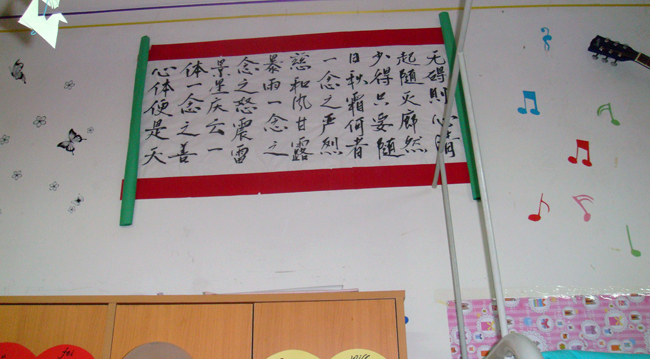 心体便是天
体一念之善
景星庆云一
念之怒震雷
暴雨一念之
慈和风甘露
一念之严烈
日秋霜何者
少得只妄随
起随灭廓然
无碍则心
fei